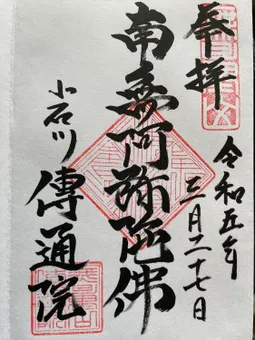 奉拝
令和五年
三月二十七日
南無阿弥陀佛
小石川
傳通院